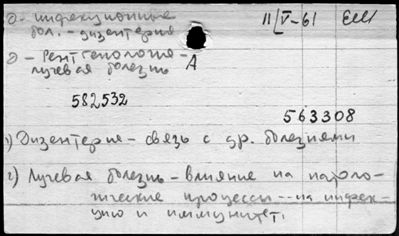 д - инфекционные 11/V-61
бол. - дизентерия
д - Рентгенология -
лучевая болезнь А
582532
563308
1) Дизентерия - связь с др. болезнями
2) Лучевая болезнь - влияние на патоло-
гические процессы -- на инфек-
цию и иммунитет.